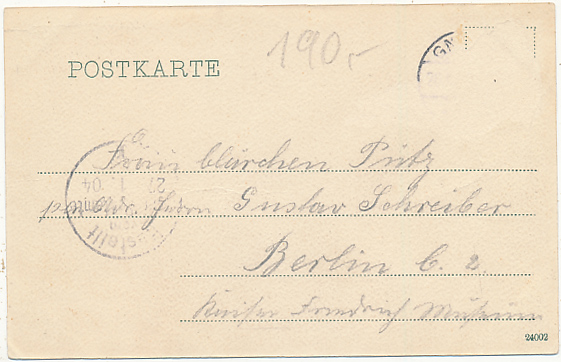 190,-
GA
POSTKARTE
Frau Klärchen Pütz
per Adr. Herrn Gustav Schreiber
Berlin C. 2.
Kaiser Friedrich Museum
Bestellt
1. 04
24002